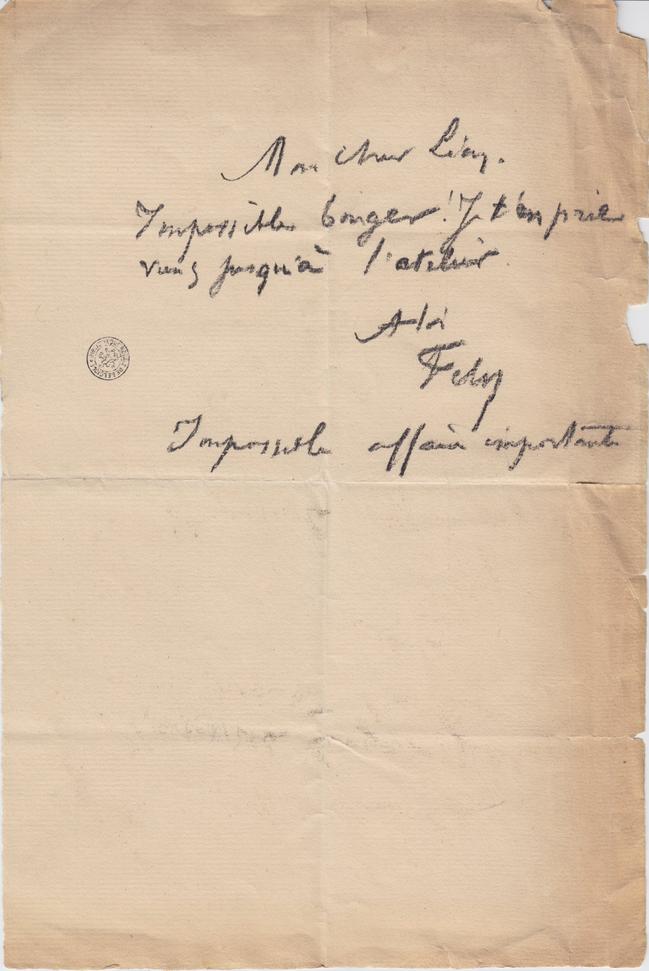 Mon cher Léon.
Impossible bouger! Je t'en prie
viens jusqu'à l'atelier.
A toi
Fély
Impossible affaire importante